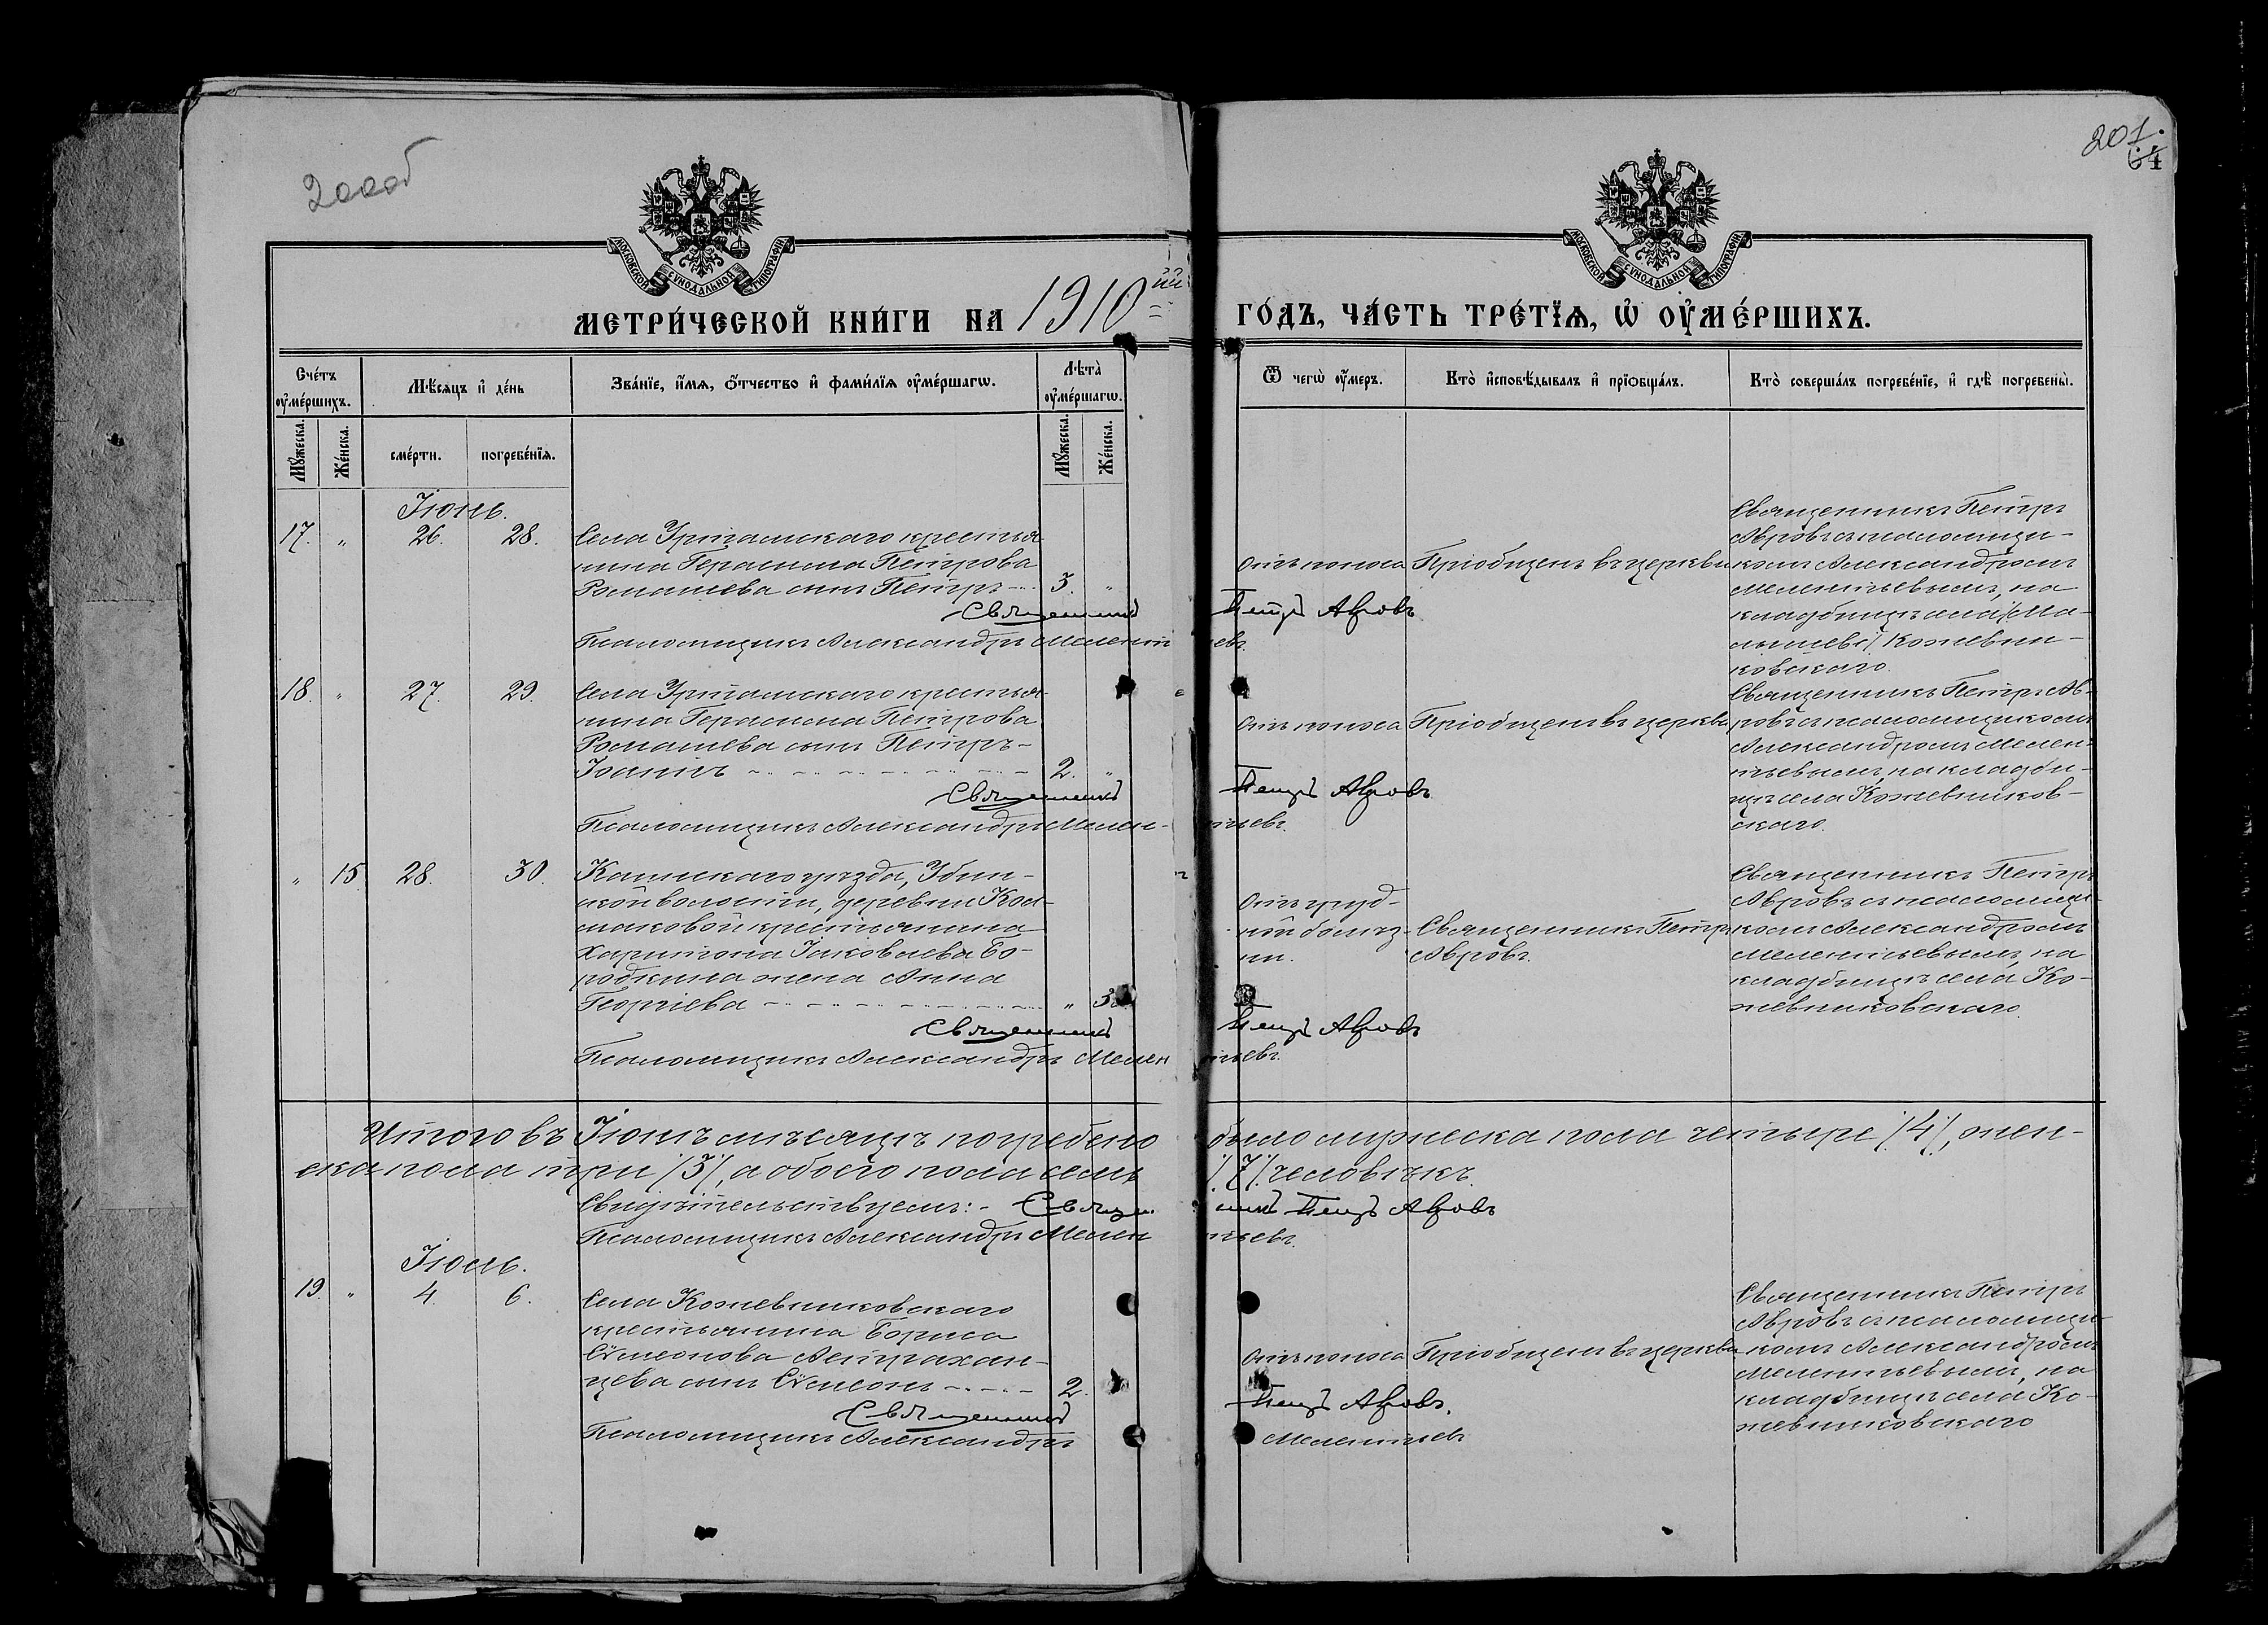 200об
201.
64
МОСКОВСКОЙ СѴНОДАЛЬНОЙ ТИПОГРАФІИ
МОСКОВСКОЙ СѴНОДАЛЬНОЙ ТИПОГРАФІИ
МЕТРИ́ЧЕСКОЙ КНИ́ГИ НА 1910ый ГО́ДЪ, ЧА́СТЬ ТРЕ́ТЇѦ, Ѡ҆ ОУ҆МЕ́РШИХЪ.
Сче́тъ оу҆ме́ршихъ.
Мѣ́сяцъ и҆ де́нь
Зва́нїе, и҆́мѧ, ѻ҆́тчество и҆ фами́лїѧ оу҆ме́ршагѡ.
Лѣта̀ оу҆ме́ршагѡ.
Ѿ чегѡ̀ оу҆́меръ.
Кто̀ и҆сповѣ́дывалъ и҆ прїѡбща́лъ.
Кто̀ соверша́лъ погребе́нїе, и҆ гдѣ̀ погребены̀.
Мꙋ́жеска.
Же́нска.
сме́рти.
погребе́нїѧ.
Мꙋ́жеска.
Же́нска.
Іюнь.
17. " 26. 28.
Села Уртамскаго крестья-
нина Герасима Петрова
Ромашева сынъ Петръ 3. "
Отъ поноса
Пріобщенъ въ церкви
Священникъ Петръ
Авровъ съ псаломщи-
комъ Александромъ
Мелентьевымъ, на
кладбищѣ села /Ма-
лышево/ Кожевни-
ковскаго.
Священникъ Петръ Авровъ
Псаломщикъ Александръ Мелентьевъ.
18. " 27. 29.
Села Уртамскаго крестья-
нина Герасима Петрова
Ромашева сынъ Петръ-
Іоаннъ 2. "
Отъ поноса
Пріобщенъ въ церкви
Священникъ Петръ Ав-
ровъ съ псаломщикомъ
Александромъ Мелен-
тьевымъ, на кладби-
щѣ села Кожевников-
скаго.
Священникъ Петръ Авровъ
Псаломщикъ Александръ Мелен-тьевъ.
" 15 28. 30.
Каинскаго уѣзда, Убин-
ской волости, деревни Кол-
маковой крестьянина
Харитона Іаковлева Бо-
родкина жена Анна
Георгіева "
Отъ груд-
ной болѣз-
ни.
Священникъ Петръ
Авровъ.
Священникъ Петръ
Авровъ съ псаломщи-
комъ Александромъ
Мелентьевымъ, на
кладбищѣ села Ко-
жевниковскаго.
Священникъ Петръ Авровъ
Псаломщикъ Александръ Мелентьевъ.
Итого въ Іюнѣ мѣсяцѣ погребено было мужеска пола четыре /4/, жен-
ска пола три /3/, а обоего пола семь /7/ человѣкъ.
Свидѣтельствуемъ:- Священникъ Петръ Авровъ
Псаломщикъ Александръ Мелентьевъ.
Іюль.
19. " 4. 6.
Села Кожевниковскаго
крестьянина Бориса
Сѵмеонова Астрахан-
цева сынъ Сѵмеонъ 2.
Отъ поноса
Пріобщенъ въ церкви
Священникъ Петръ
Авровъ съ псаломщи-
комъ Александромъ
Мелентьевымъ, на
кладбищѣ села Ко-
жевниковскаго
Священникъ Петръ Авровъ.
Псаломщикъ Александръ Мелентьевъ